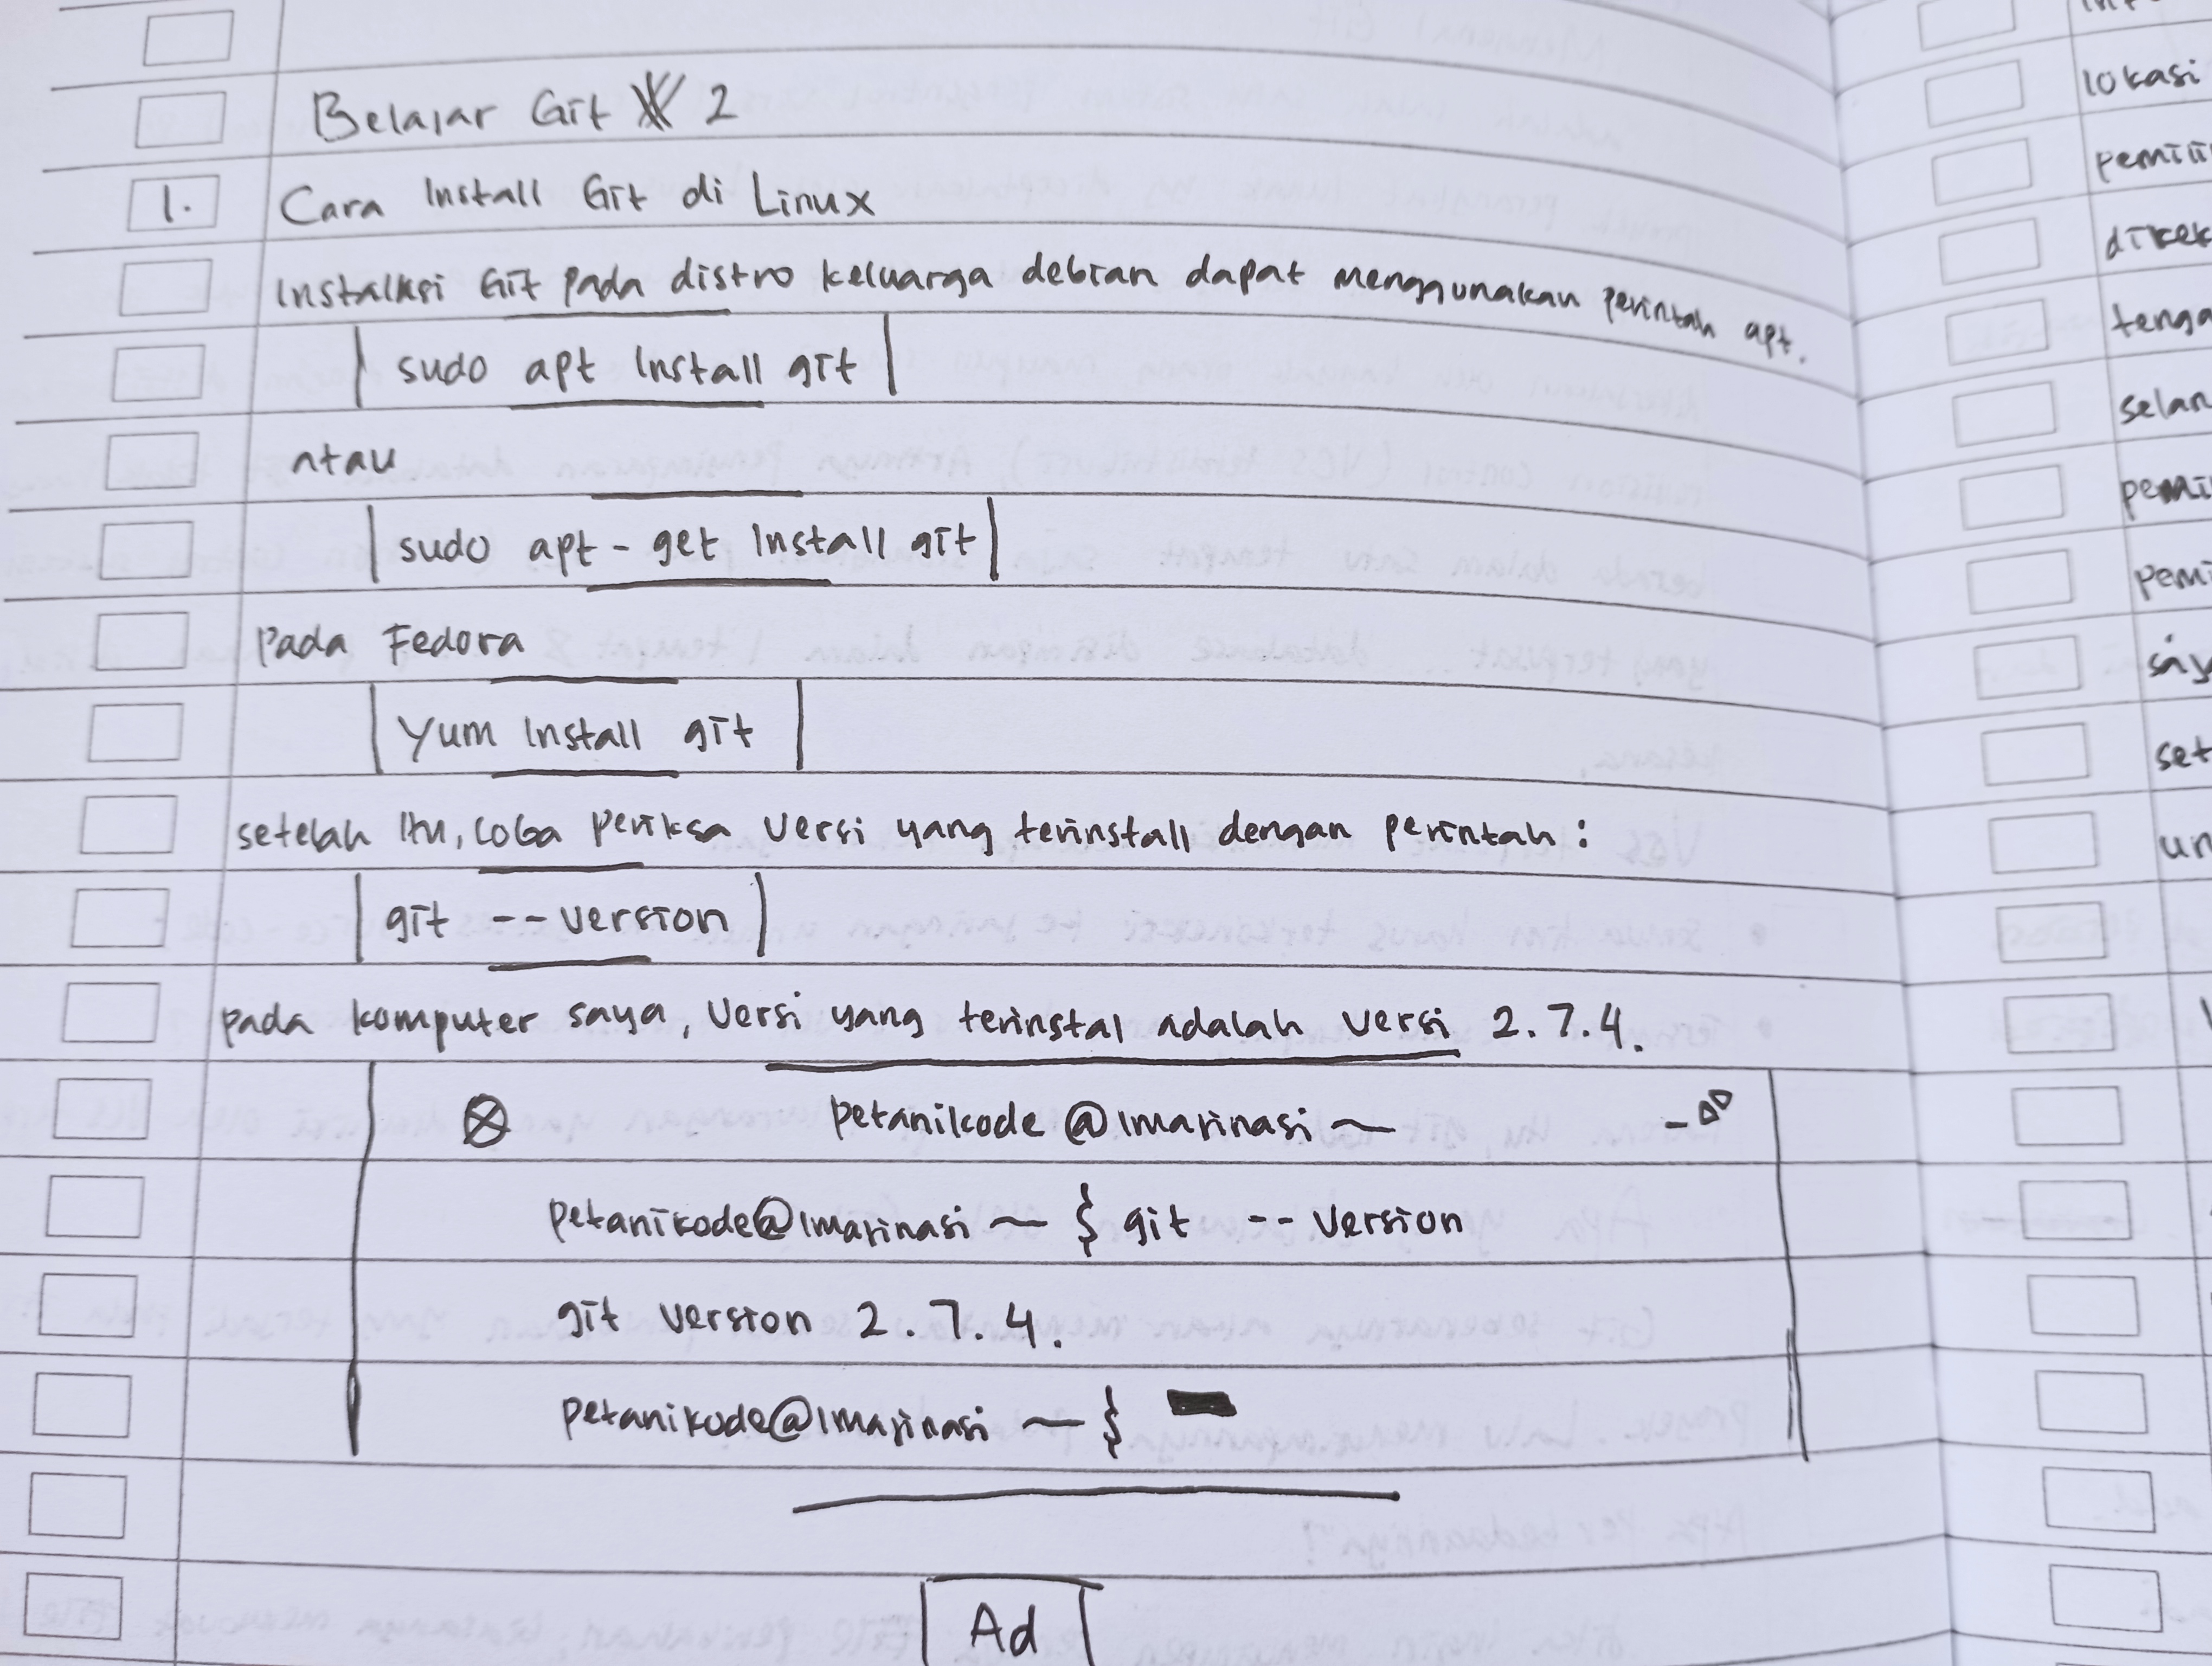 Belajar Git 2
1. Cara Install Git di Linux
Instalksi Git pada distro keluarga debian dapat menggunakan perintah apt.
sudo apt install git
ntau
sudo apt-get install git
Pada Fedora
Yum install git
setelah itu, coba periksa versi yang terinstall dengan perintah:
git --version
pada komputer saya, versi yang terinstal adalah versi 2.7.4.
petanikode@imajinasi ~
petanikode@imajinasi ~ { git --version
git version 2.7.4.
petanikode@imajinasi ~ {
Ad
lokasi
direk
tenga
selan
set
un